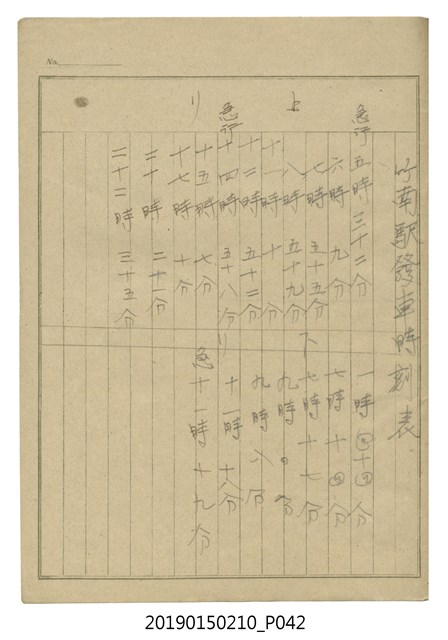 No.
竹南駅發車時刻表
上り
急行五時三十二分
六時九分
七時五十五分
八時五十九分
十一時十分
十二時五十二分
急行十四時五十八分
十五時七分
十七時十分
二十時二十一分
二十二時三十五分
下り
一時四十四分
七時十四分
七時十七分
九時八分
十一時十分
急十一時十九分
20190150210_P042